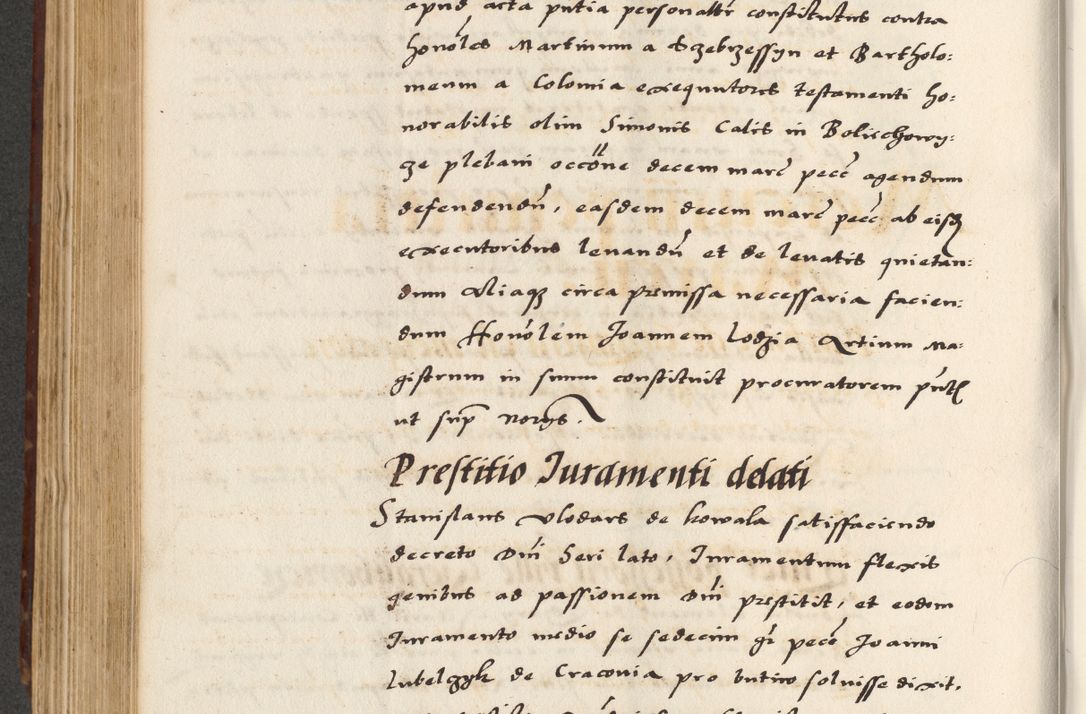 apud acta pntia personalr constitutus contra
honoles Martinum a Sczebrzessyn et Bartholo:
meum a Colonia exequutores testamenti ho:
norabilis olim Simonis Calis in Boliechowy:
cze plebani occone decem marc pecc agendum
defendendu, easdem decem marc pecc ab eisdz
executoribus levandu et de levatis quietan:
dum Aliaqz circa premissa necessaria facien:
dum Honolem Joannem Lodzia Artium Ma:
gistrum in suum constituit procuratorem pntl
ut sup norys.
Prestitio Iuramenti delati
Stanislaus Vlodars de kowala satisffaciendo
decreto Dni heri lato, Iuramentum flexis
genibus ad passionem Dni prestitit, et eodem
Iuramento medio se sedecim gr pecc Joanni
Lubelczyk de Cracovia pro butiro solvisse dixit,